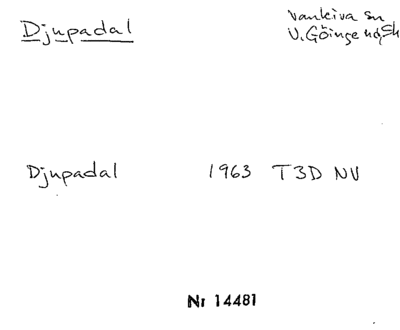 Djupadal
Vankiva sn
V. Göinge hd, Sk
Djupadal 1963 T3D NV
Nr 14481